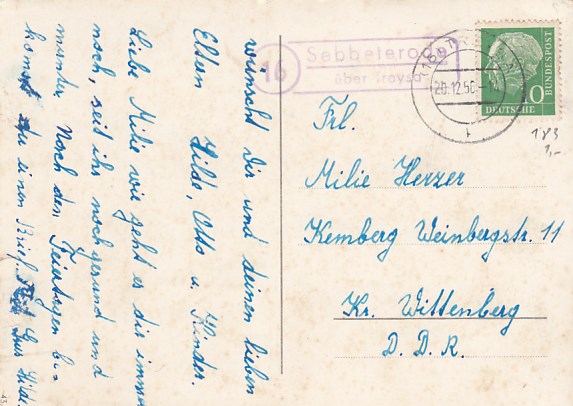 wünscht Dir und deinen lieben
Eltern Hilde, Otto u. Kinder.
Liebe Milie wie geht es dir immer
noch, seid ihr noch gesund und
munter. Noch den Feiertagen be-
kommst du einen Brief. Gus Hilde.
16
Sebbeterode
über Treysa
20.12.56
DEUTSCHE
BUNDESPOST
10
183
1,-
Frl.
Milie Herzer
Kemberg Weinbergstr. 11
Kr. Wittenberg
D. D. R.